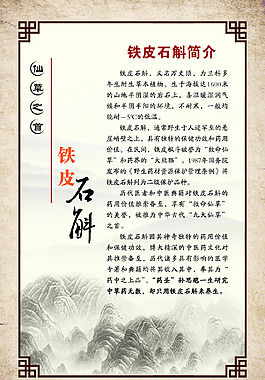 铁皮石斛简介
仙草之首
铁皮石斛
铁皮石斛，又名万丈须，为兰科多
年生附生草本植物。生于海拔达1600米
的山地半阴湿的岩石上，喜温暖湿润气
候和半阴半阳的环境，不耐寒，一般均
能耐-5℃的低温。
铁皮石斛，通常野生于人迹罕至的悬
崖峭壁之上，具有独特的保健功效和药用
价值。在民间，铁皮枫斗被誉为“救命仙
草”和药界的“大熊猫”。1987年国务院
发布的《野生药材资源保护管理条例》将
铁皮石斛列为二级保护品种。
历代医者和中医典籍对铁皮石斛的
药用价值推崇备至，享有“救命仙草”
的美誉，被推为中华古代“九大仙草”
之首。
铁皮石斛因其神奇独特的药用价值
和保健功效，博大精深的中医药文化对
其推崇备至，历代诸多具有影响的医学
专著和典籍均将其收入其中，奉其为“
药中之上品”。“药圣”孙思邈一生研究
中草药无数，却只用铁皮石斛来养生。